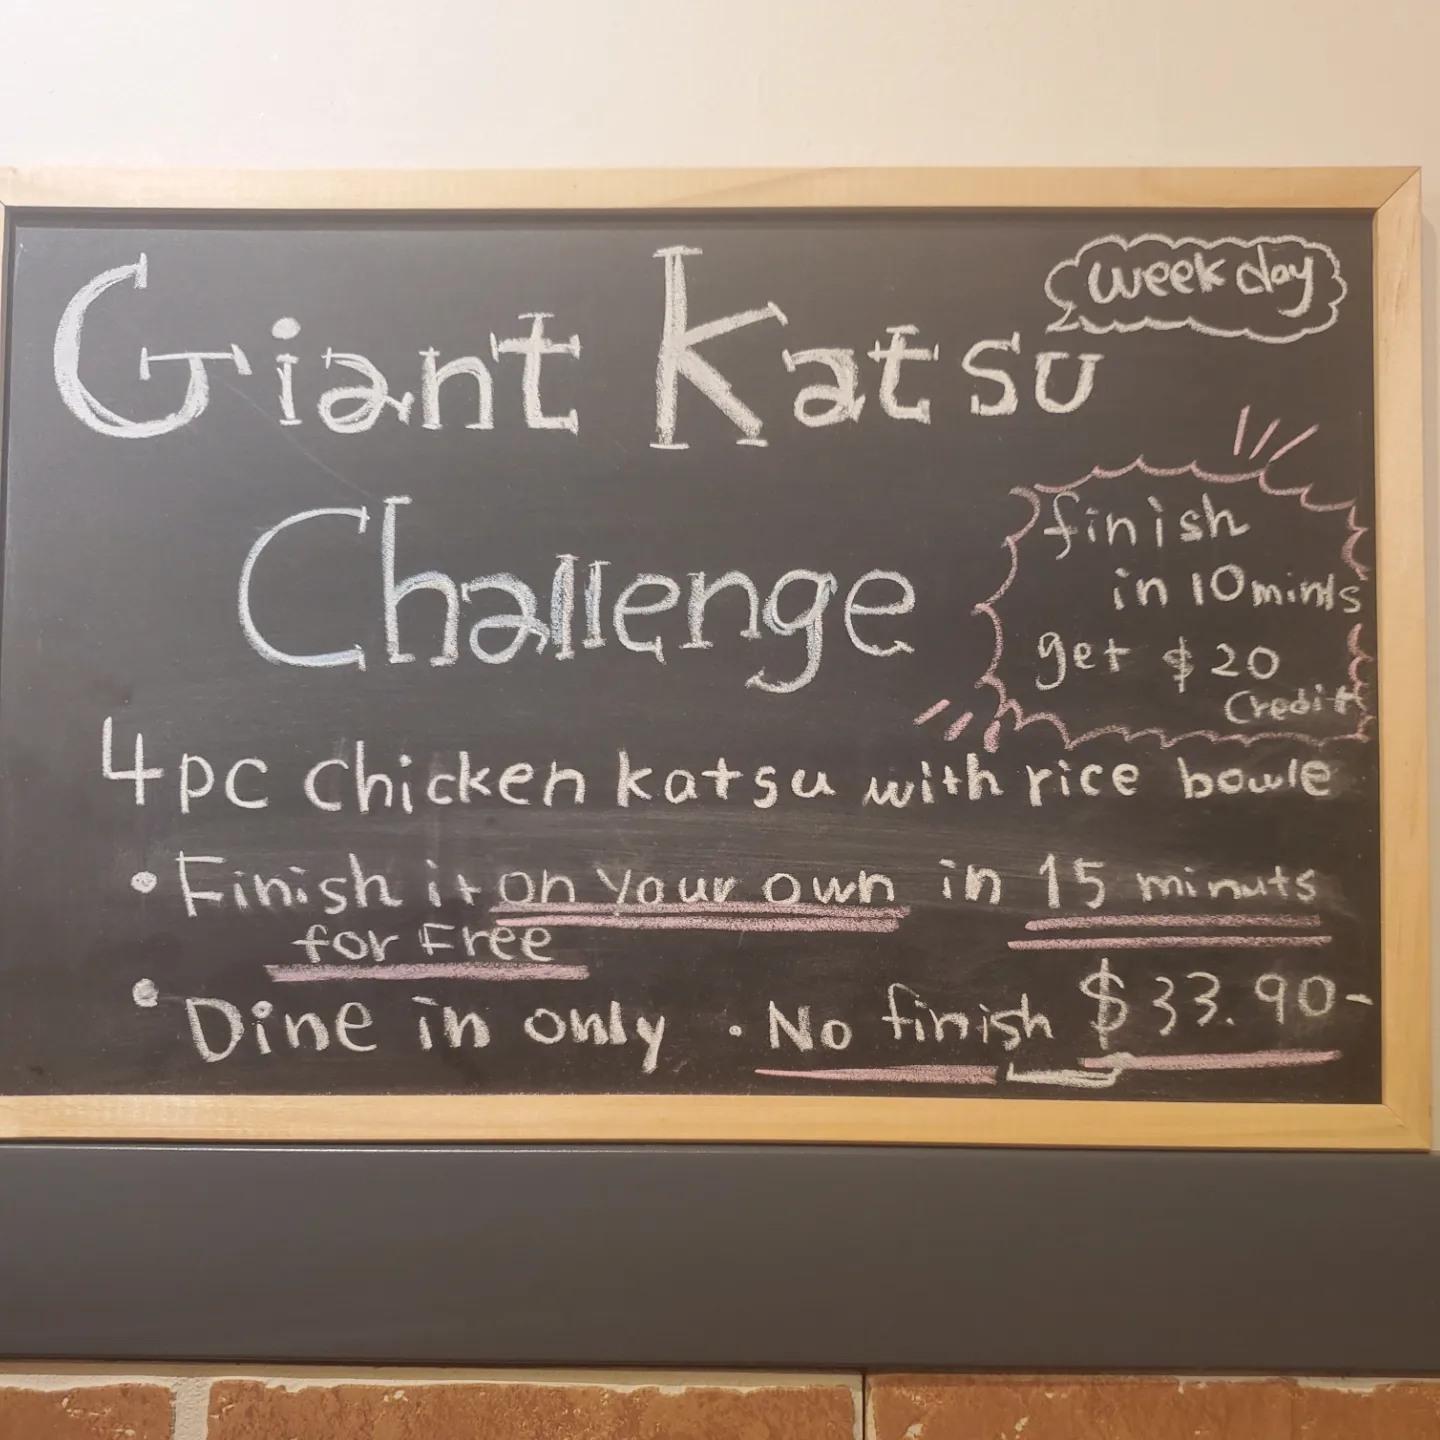 week day
Giant Katsu
Challenge
finish
in 10 minits
get $20
Credit
4 pc chicken katsu with rice bowle
• Finish it on your own in 15 minuts
for Free
• Dine in only • No finish $33.90-